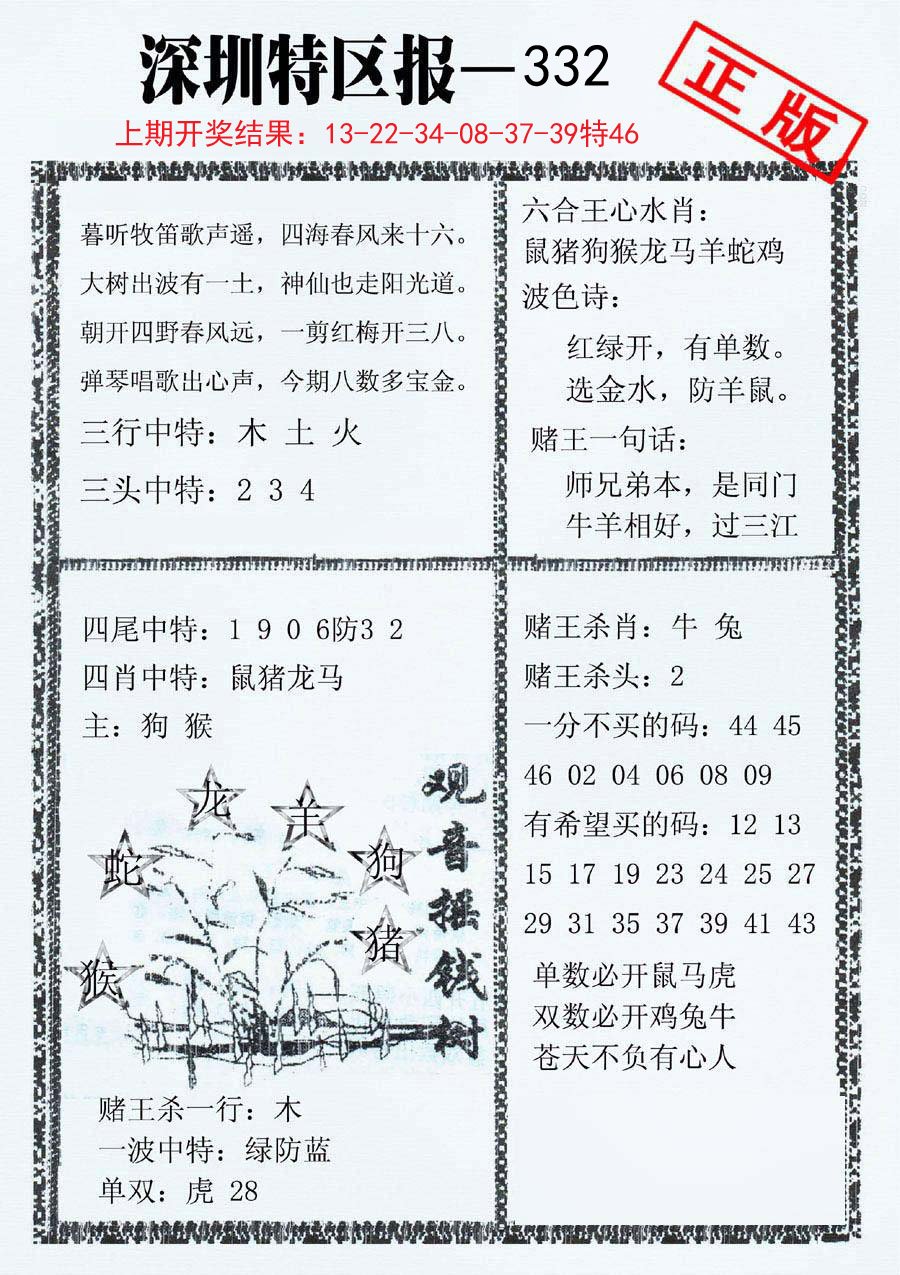 深圳特区报—332
正版
上期开奖结果：13-22-34-08-37-39特46
暮听牧笛歌声遥，四海春风来十六。
大树出波有一土，神仙也走阳光道。
朝开四野春风远，一剪红梅开三八。
弹琴唱歌出心声，今期八数多宝金。
三行中特：木 土 火
三头中特：2 3 4
六合王心水肖：
鼠猪狗猴龙马羊蛇鸡
波色诗：
红绿开，有单数。
选金水，防羊鼠。
赌王一句话：
师兄弟本，是同门
牛羊相好，过三江
四尾中特：1 9 0 6防3 2
四肖中特：鼠猪龙马
主：狗 猴
龙
羊
蛇
狗
猪
猴
观音摇钱树
赌王杀一行：木
一波中特：绿防蓝
单双：虎 28
赌王杀肖：牛 兔
赌王杀头：2
一分不买的码：44 45
46 02 04 06 08 09
有希望买的码：12 13
15 17 19 23 24 25 27
29 31 35 37 39 41 43
单数必开鼠马虎
双数必开鸡兔牛
苍天不负有心人